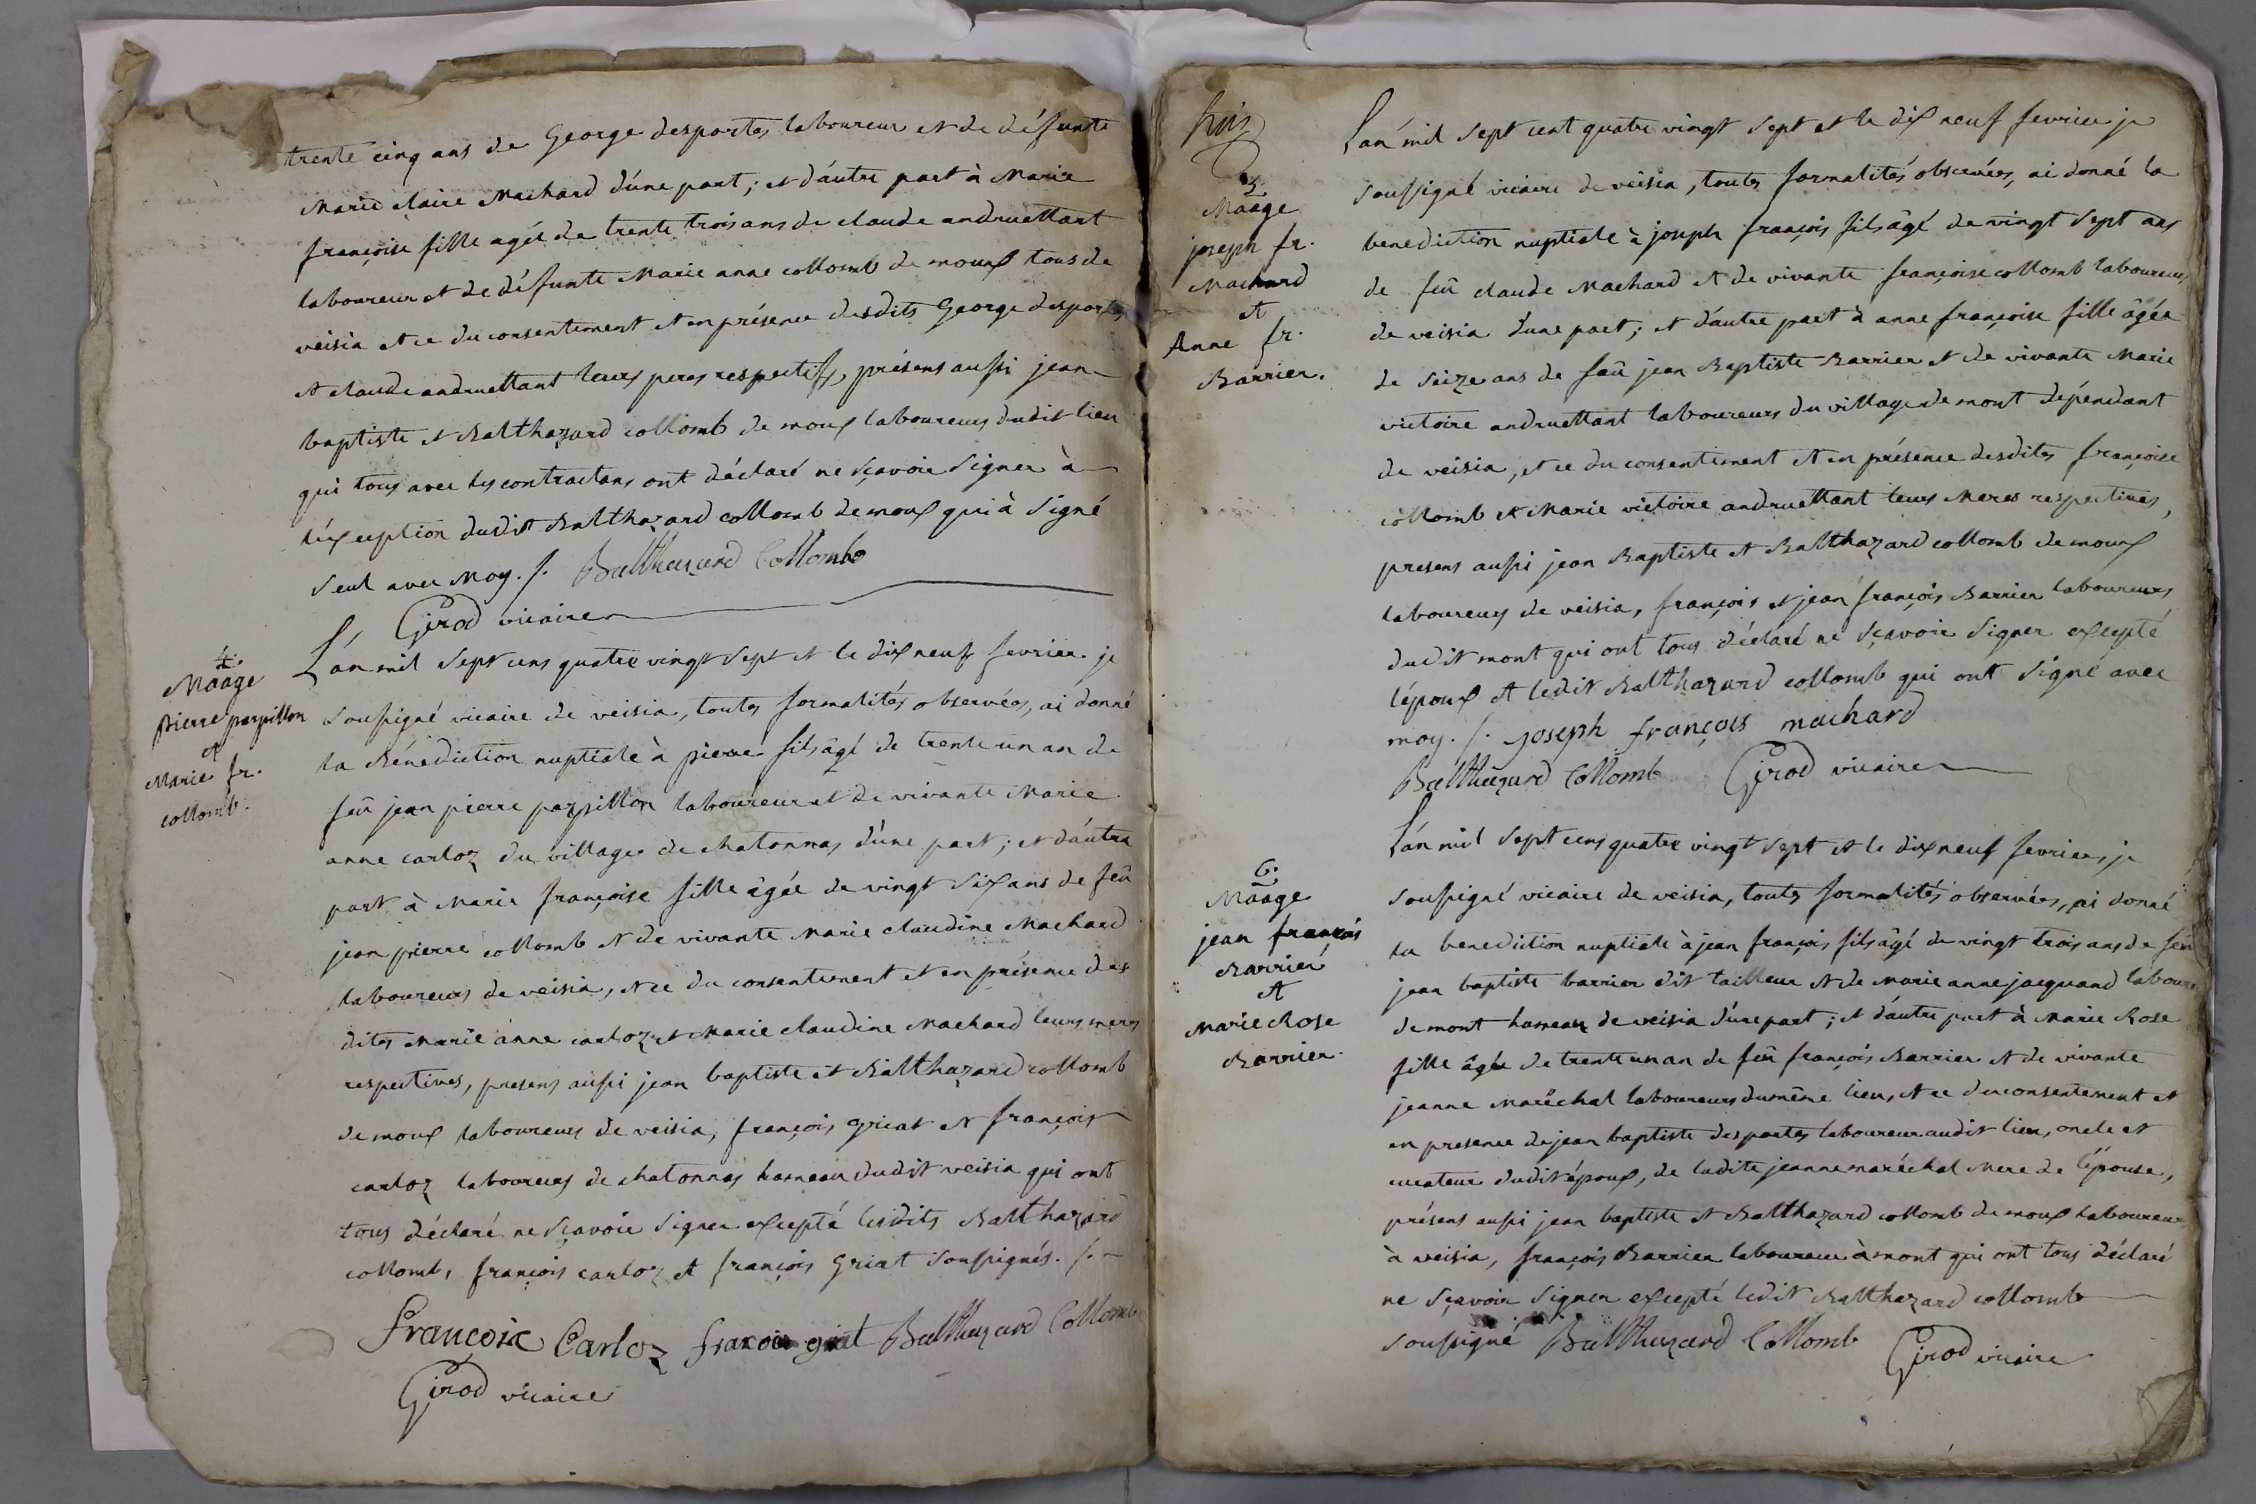 trente cinq ans de George desportes laboureur et de défunte
Marie claire Machard d'une part; et d'autre part à Marie
françoise fille agée de trente trois ans de claude andruettant
laboureur et de défunte Marie anne collomb de moux tous de
veisia et ce du consentement et en présence desdits George desportes
et claude andruettant leurs peres respectifs, présens aussi jean
baptiste et Balthazard collomb de moux laboureurs dudit lieu
qui tous avec les contractans ont déclaré ne sçavoir signer à
l'exception dudit Balthazard collomb de moux qui à signé
seul avec Moy. /. Balthazard Collomb
Girod vicaire
4.
Maage
pierre parpillon
et
Marie fr.
collomb.
L'an mil sept cens quatre vingt sept et le dix neuf fevrier. je
soussigné vicaire de veisia, toutes formalités observées, ai donné
la Bénédiction nuptiale à pierre fils âgé de trente un an de
feû jean pierre parpillon laboureur et de vivante Marie
anne carloz du village de chatonnas d'une part; et d'autre
part à Marie françoise fille âgée de vingt six ans de feû
jean pierre collomb et de vivante Marie claudine Machard
laboureurs de veisia, et ce du consentement et en présence des
dites Marie anne carloz et Marie claudine Machard leurs meres
respectives, presens aussi jean baptiste et Balthazard collomb
de moux laboureurs de veisia, françois griat et françois
carloz laboureurs de chatonnas hameau dudit veisia qui ont
tous déclaré ne sçavoir signer excepté lesdits Balthazard
collomb, françois carloz et françois griat soussignés. /.
francoix Carloz francoi griat Balthazard Collomb
Girod vicaire
huis
5.
Maage
joseph fr.
Machard
et
Anne fr.
Barrier.
L'an mil sept cent quatre vingt sept et le dix neuf fevrier je
soussigné vicaire de veisia, toutes formalités observées, ai donné la
benediction nuptiale à joseph françois fils âgé de vingt sept ans
de feû claude Machard et de vivante françoise collomb laboureurs
de veisia d'une part; et d'autre part à anne françoise fille âgée
de seize ans de feû jean Baptiste Barrier et de vivante Marie
victoire andruettant laboureurs du village de mont dépendant
de veisia, et ce du consentement et en présence desdites françoise
collomb et Marie victoire andruettant leurs Meres respectives,
presens aussi jean Baptiste et Balthazard collomb de moux
laboureurs de veisia, françois et jean françois Barrier laboureurs
dudit mont qui ont tous déclaré ne sçavoir signer excepté
l'époux et ledit Balthazard collomb qui ont signé avec
moy. /. joseph françois machard
Balthazard Collomb Girod vicaire
6.
Maage
jean françois
Barrier
et
Marie Rose
Barrier.
L'an mil sept cens quatre vingt sept et le dix neuf fevrier, je
soussigné vicaire de veisia, toutes formalités observées, ai donné
la benediction nuptiale à jean françois fils âgé de vingt trois ans de feû
jean baptiste barrier dit tailleur et de Marie anne jacquand laboure
de mont hameau de veisia d'une part; et d'autre part à Marie Rose
fille âgée de trente un an de feû françois Barrier et de vivante
jeanne Maréchal laboureurs du même lieu, et ce du consentement et
en presence de jean baptiste desportes laboureur audit lieu, oncle et
curateur dudit époux, de ladite jeanne maréchal Mere de l'épouse,
présens aussi jean baptiste et Balthazard collomb de moux laboureurs
à veisia, françois Barrier laboureur à mont qui ont tous déclaré
ne sçavoir signer excepté ledit Balthazard collomb
soussigné Balthazard Collomb Girod vicaire